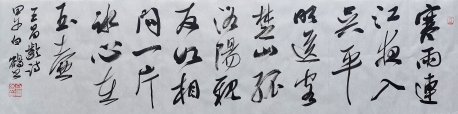 寒雨連
江夜入
吴平
明送客
楚山孤
洛陽親
友如相
問一片
冰心在
玉壺
王昌齡詩
甲午